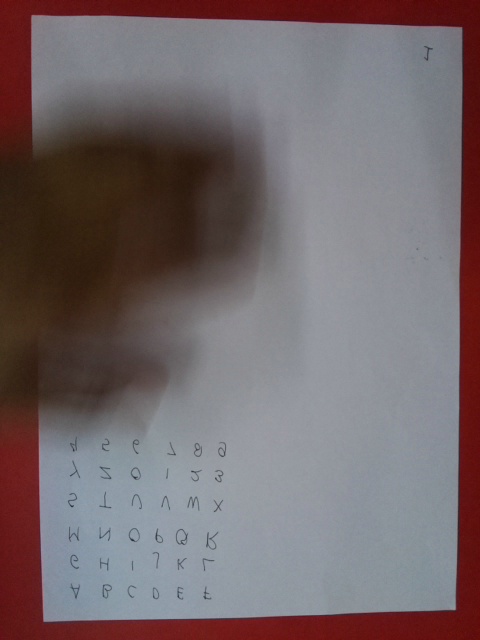 A B C D E F
G H I J K L
M N O P Q R
S T U V W X
Y Z 0 1 2 3
4 5 6 7 8 9
1